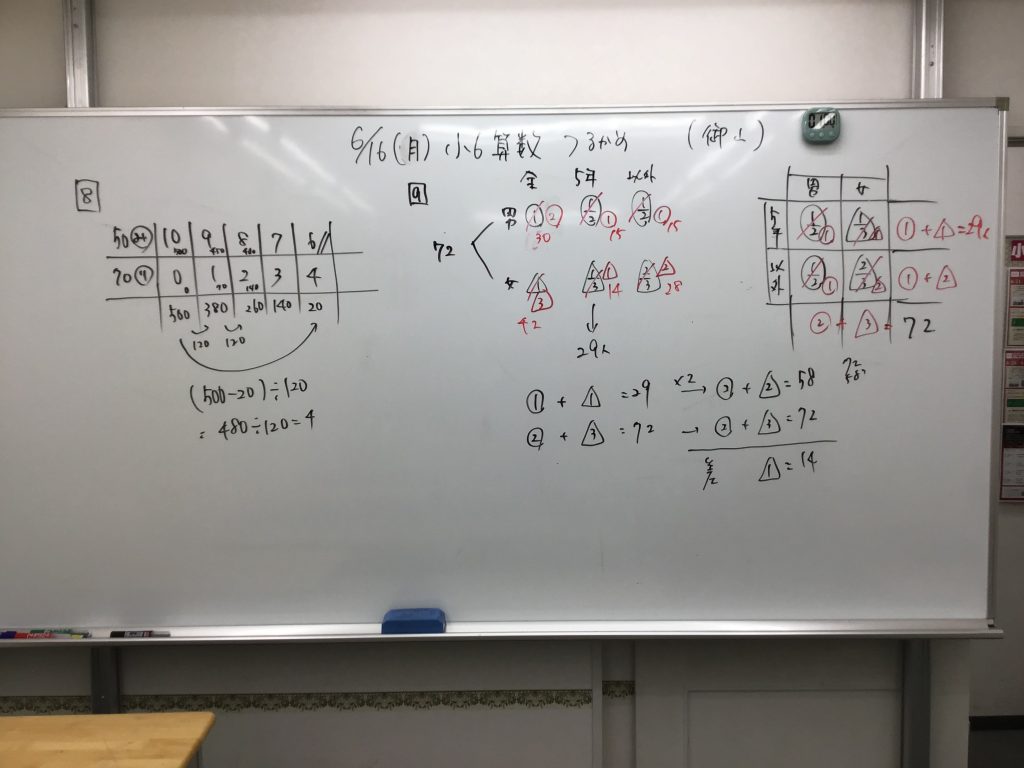 6/16(月) 小6 算数 つるかめ (御上)
8
50 10 9 8 7 6
500 450 400
70 0 1 2 3 4
0 70 140
500 380 260 140 20
120 120
(500-20)÷120
= 480÷120=4
9
全 5年 以外
72
男 ① ② ①/2 ① ①/2 ①
30 15 15
女 △1 △3 △1/3 △1 △2/3 △2
42 14 28
29人
① + △1 = 29 ×2→ ② + △2 = 58
② + △3 = 72 → ② + △3 = 72
△1 = 14
72
58
男 女
5年 ①/2 ① △1/3 △1 ① + △1 = 29人
以外 ①/2 ① △2/3 △2 ① + △2
② + △3 = 72